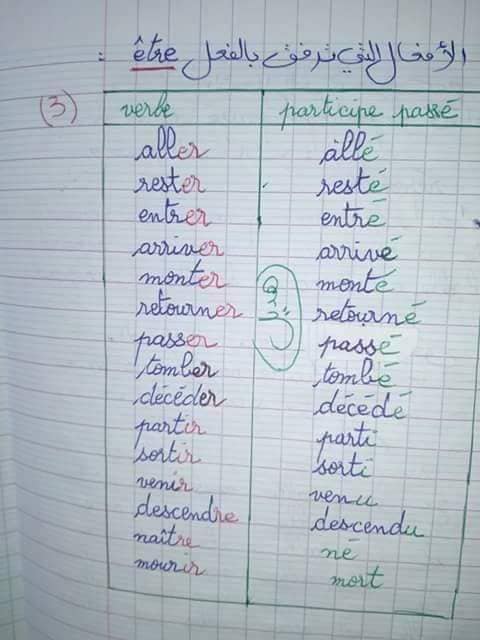 الأفعال التي ترفق بالفعل être :
(3)
verbe participe passé
aller allé
rester resté
entrer entré
arriver arrivé
monter monté
retourner retourné
passer passé
tomber tombé
décéder décédé
partir parti
sortir sorti
venir venu
descendre descendu
naître né
mourir mort